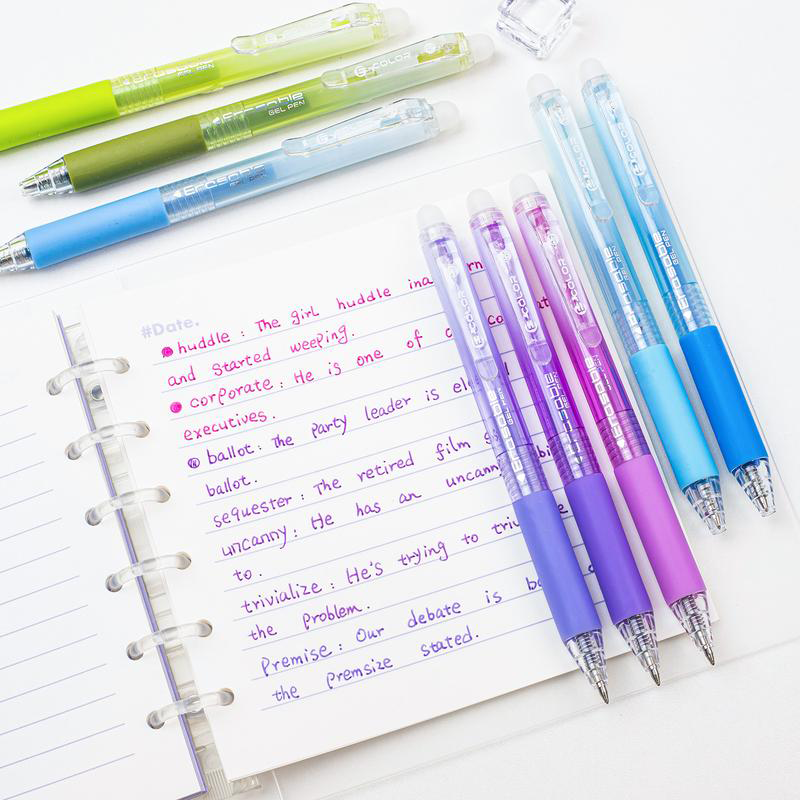 Erasable
GEL PEN
G-COLOR
Erasable
GEL PEN
Erasable
GEL PEN
#Date.
huddle : The girl huddle in a
and started weeping.
corporate : He is one of
executives.
ballot : The party leader is
ballot.
sequester : The retired film
uncanny : He has an uncanny
to.
trivialize : He's trying to
the problem.
Premise : Our debate is
the Premsize stated.
G-COLOR
Erasable
GEL PEN
G-COLOR
Erasable
GEL PEN
G-COLOR
Erasable
GEL PEN
Erasable
GEL PEN
Erasable
GEL PEN